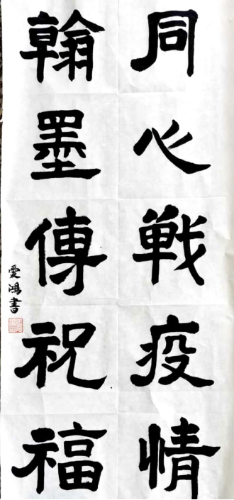 同心戦疫情
翰墨傳祝福
愛鴻書